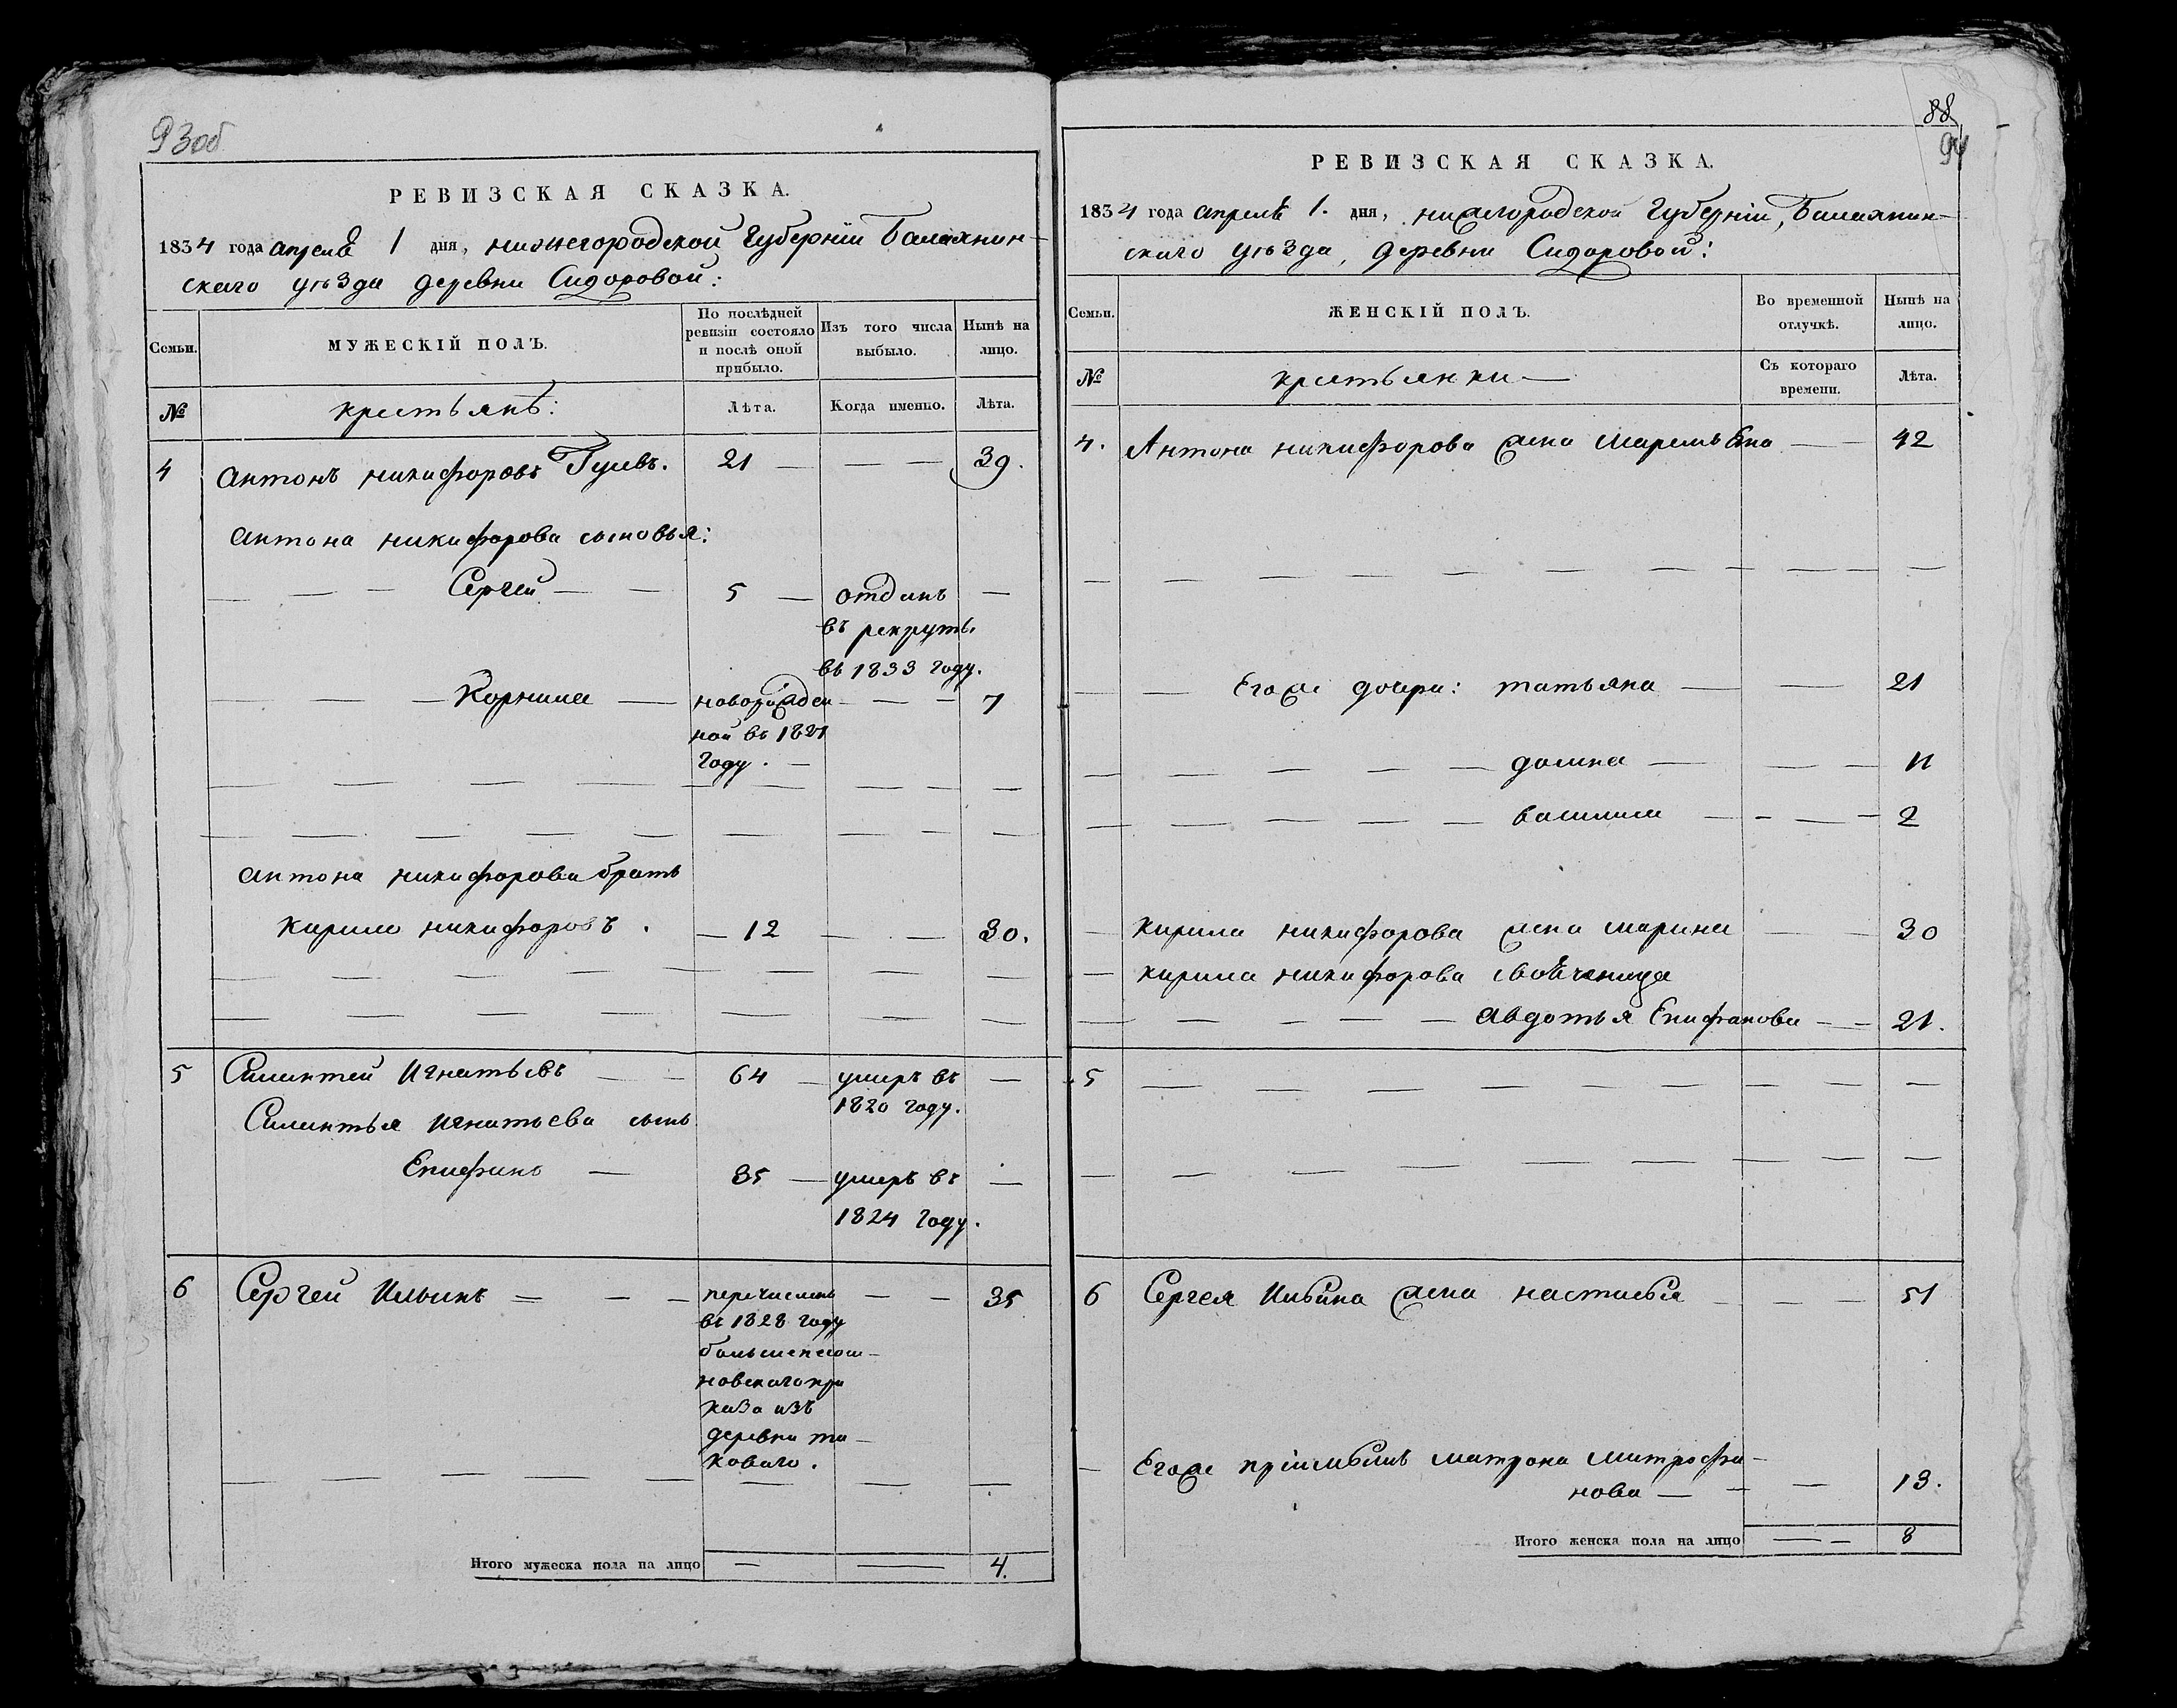 93об
РЕВИЗСКАЯ СКАЗКА.
1834 года апреля 1 дня, нижегородской Губерніи Балахнин-
скаго уѣзда деревни Сидоровой:
Семьи.
МУЖЕСКІЙ ПОЛЪ.
По послѣдней ревизіи состояло и послѣ оной прибыло.
Изъ того числа выбыло.
Нынѣ на лицо.
№
крестьянѣ:
Лѣта.
Когда именно.
Лѣта.
4 Антонъ никифоровъ 21 — — — 39.
антона никифорова сыновья:
— — — Сергей — — 5 — отданъ —
въ рекруты.
въ 1833 году.
— — — Корнила — новорожден — — — 7
ной въ 1827
году. —
антона никифорова братъ
кирило никифоровъ . — 12 — — — 30.
5 Силантей Игнатьевъ — — 64 — умеръ въ —
1820 году.
Силантья игнатьева сынъ
Епифанъ — 35 — умеръ въ —
1824 году.
6 Сергей Ильинъ — — — перечисленъ — — 35
въ 1828 году
новскаго при
каза изъ
деревни
Итого мужеска пола на лицо — — 4.
88
94
РЕВИЗСКАЯ СКАЗКА.
1834 года апреля 1. дня, нижегородской Губерніи, Балахнин-
скаго уѣзда, деревни Сидоровой:
Семьи.
ЖЕНСКІЙ ПОЛЪ.
Во временной отлучкѣ.
Нынѣ на лицо.
№
крестьянки —
Съ котораго времени.
Лѣта.
4. Антона никифорова жена — — 42
— — Егоже дочери: татьяна — — 21
— — — — — домна — — — 11
— — — — — василиса — — — — 2
— Кирила никифорова жена марина — — 30
— кирила никифорова своячница
— — — — — Авдотья Епифанова — — 21.
5 — — — — — — — — —
6 Сергея Ильина жена настасья — — — 51
— Егоже пріимышъ матрона митрофа-
нова — — — 13.
Итого женска пола на лицо — — 8